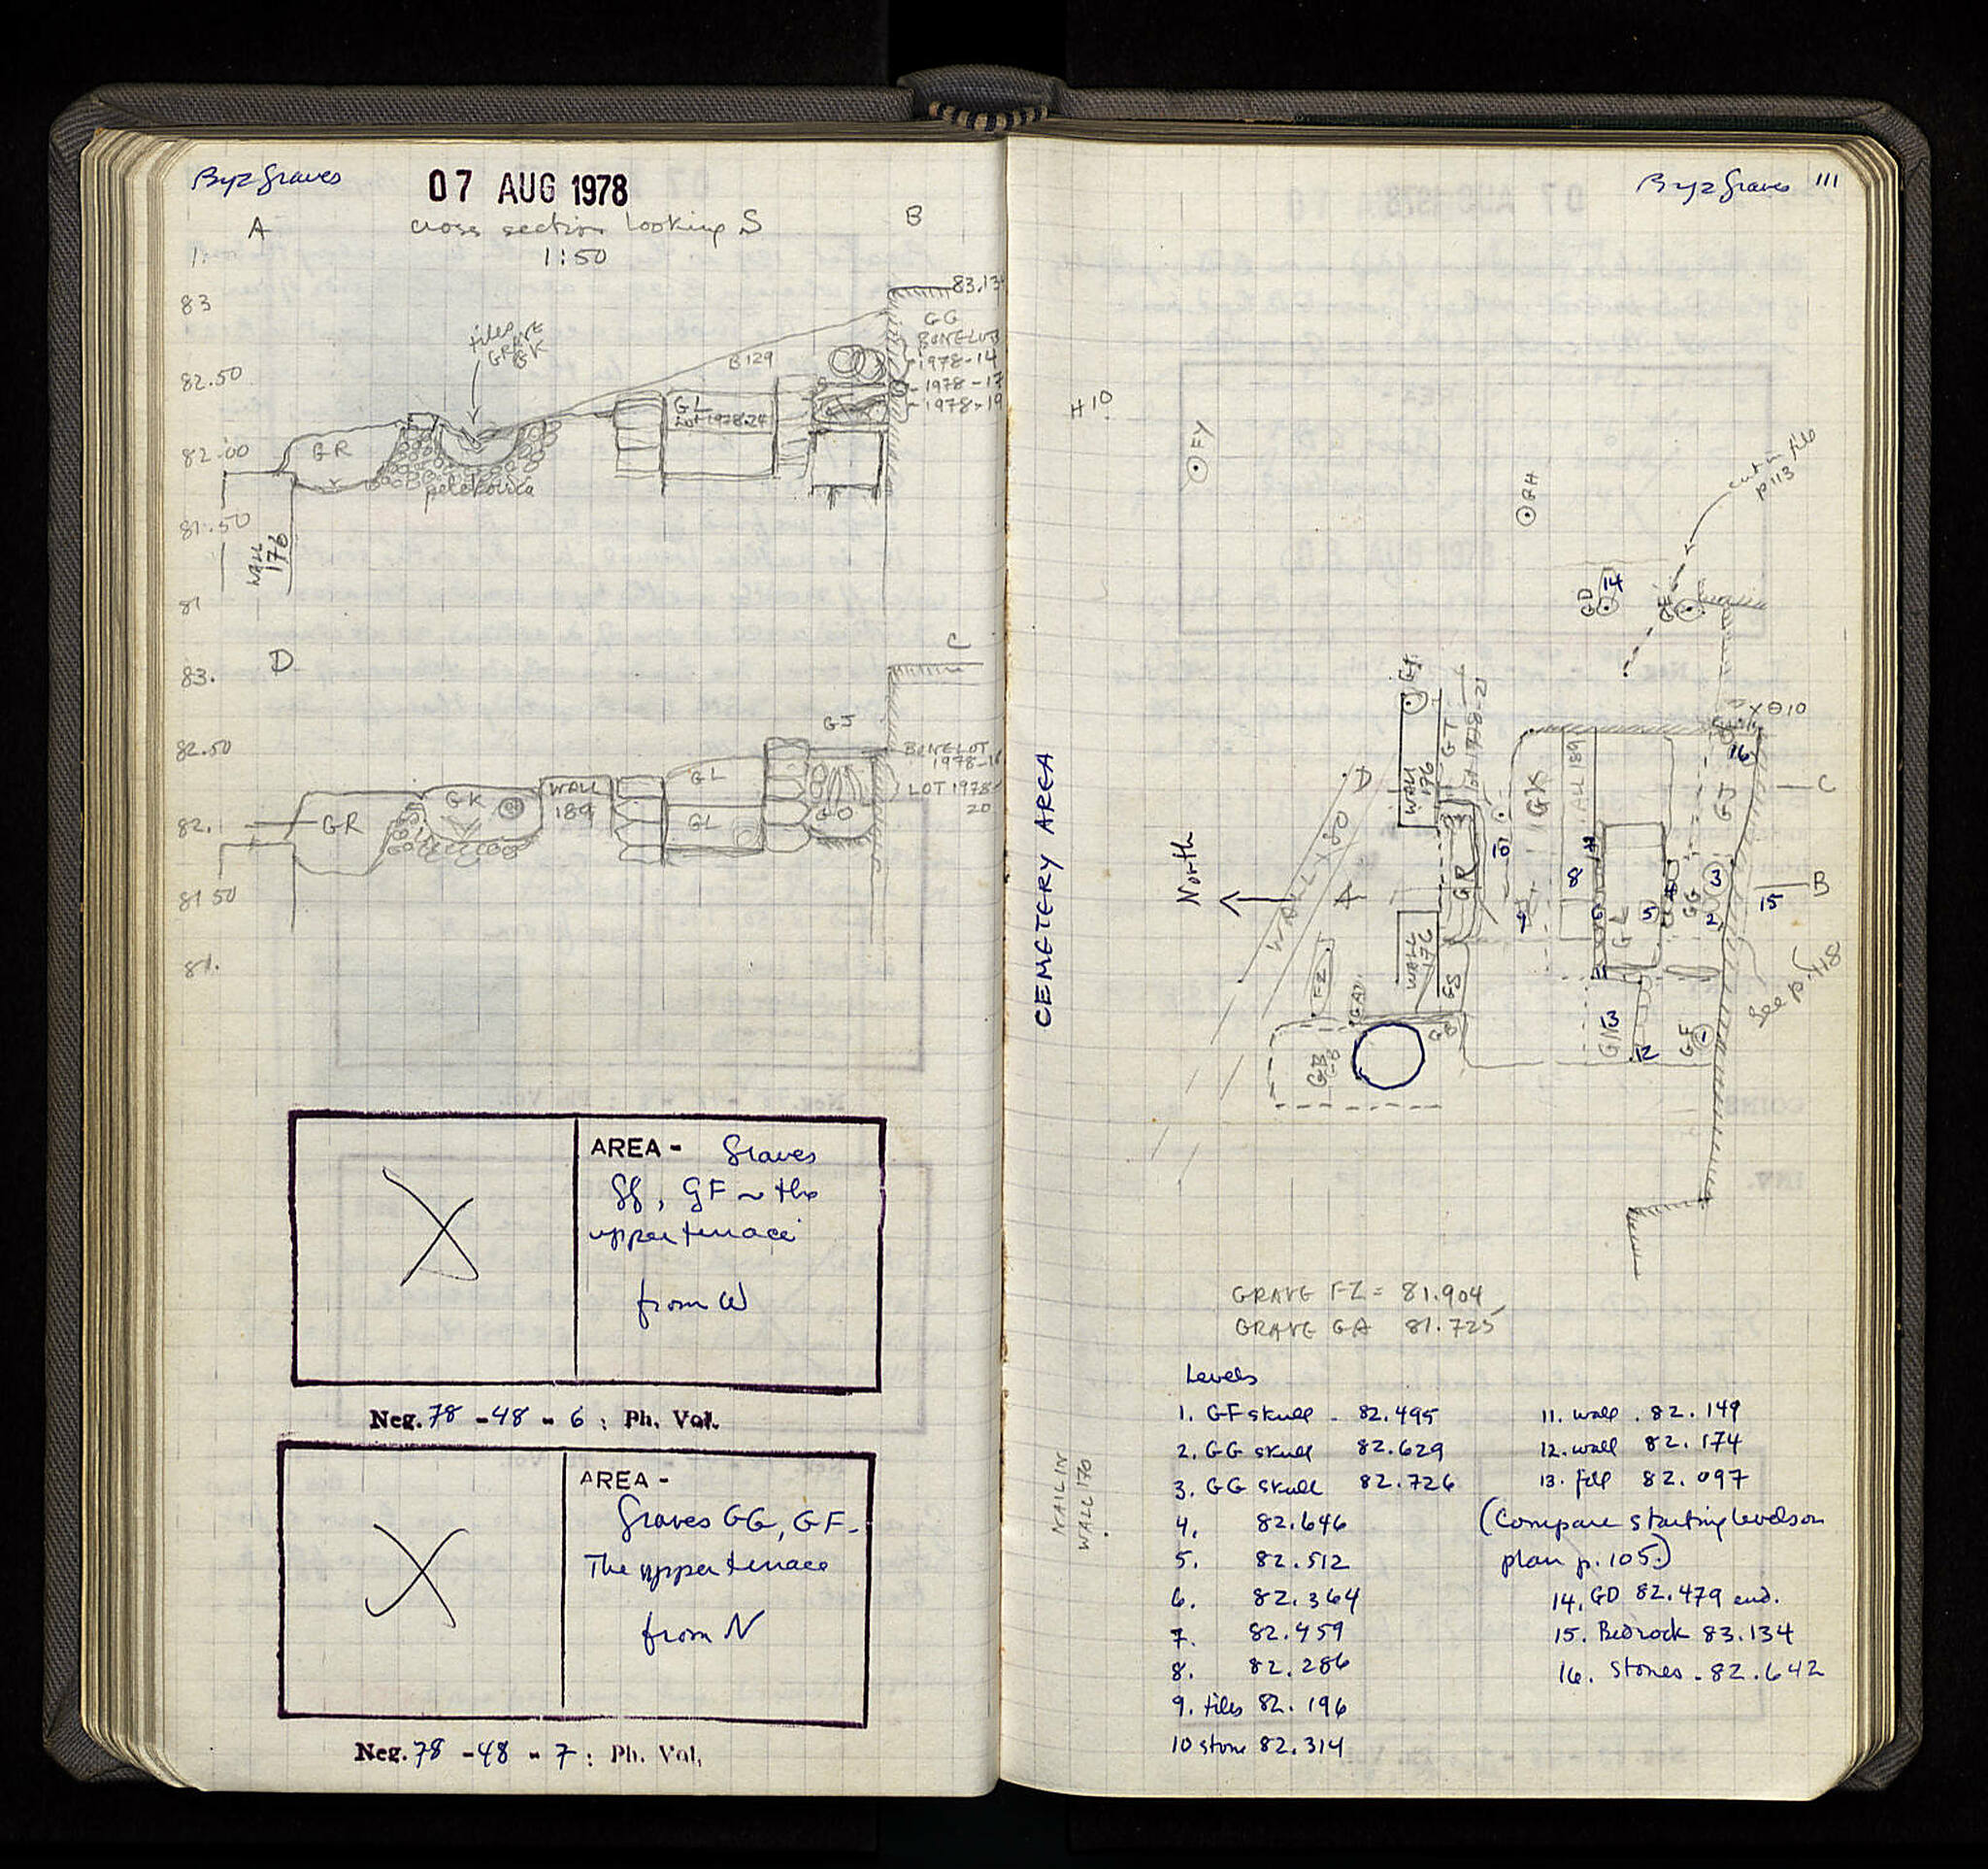 Byz Graves
07 AUG 1978
A
cross section looking S
B
1:50
83
83.13
tiles
GRAVE
GK
GG
BONE LOT
1978-14
1978-17
1978-19
82.50
B129
GL
Lot 1978-24
GR
82.00
peletovica
81.50
WALL
176
81
D
C
83.
GJ
82.50
BONE LOT
1978-18
LOT 1978-
20
GL
GK
WALL
189
GR
GL
GO
82.
81.50
81.
AREA - Graves
GG, GF ~ the
upper terrace
from W
Neg. 78 - 48 - 6 : Ph. Vol.
AREA -
Graves GG, GF -
The upper terrace
from N
Neg. 78 - 48 - 7 : Ph. Vol.
Byz Graves 111
H10
FY
GH
cut in fill
p 113
GD
14
GE
XΘ10
16
GT
Lot 1978-21
WALL
176
D
WALL 180
GK
WALL 189
GJ
C
CEMETERY AREA
North
A
GR
10
8
3
B
15
9
6
GL
5
4
GG
2
WALL
176
GS
FZ
GA
11
See p. 118
GB
GB
13
GN
12
GF
1
GRAVE FZ = 81.904
GRAVE GA 81.725
Levels
1. GF skull - 82.495
2. GG skull 82.629
3. GG skull 82.726
4. 82.646
5. 82.512
6. 82.364
7. 82.459
8. 82.286
9. tiles 82.196
10 stone 82.314
11. wall . 82.149
12. wall 82.174
13. fill 82.097
(Compare starting levels on
plan p. 105.)
14. GD 82.479 end.
15. Bedrock 83.134
16. Stones - 82.642
NAIL IN
WALL 170